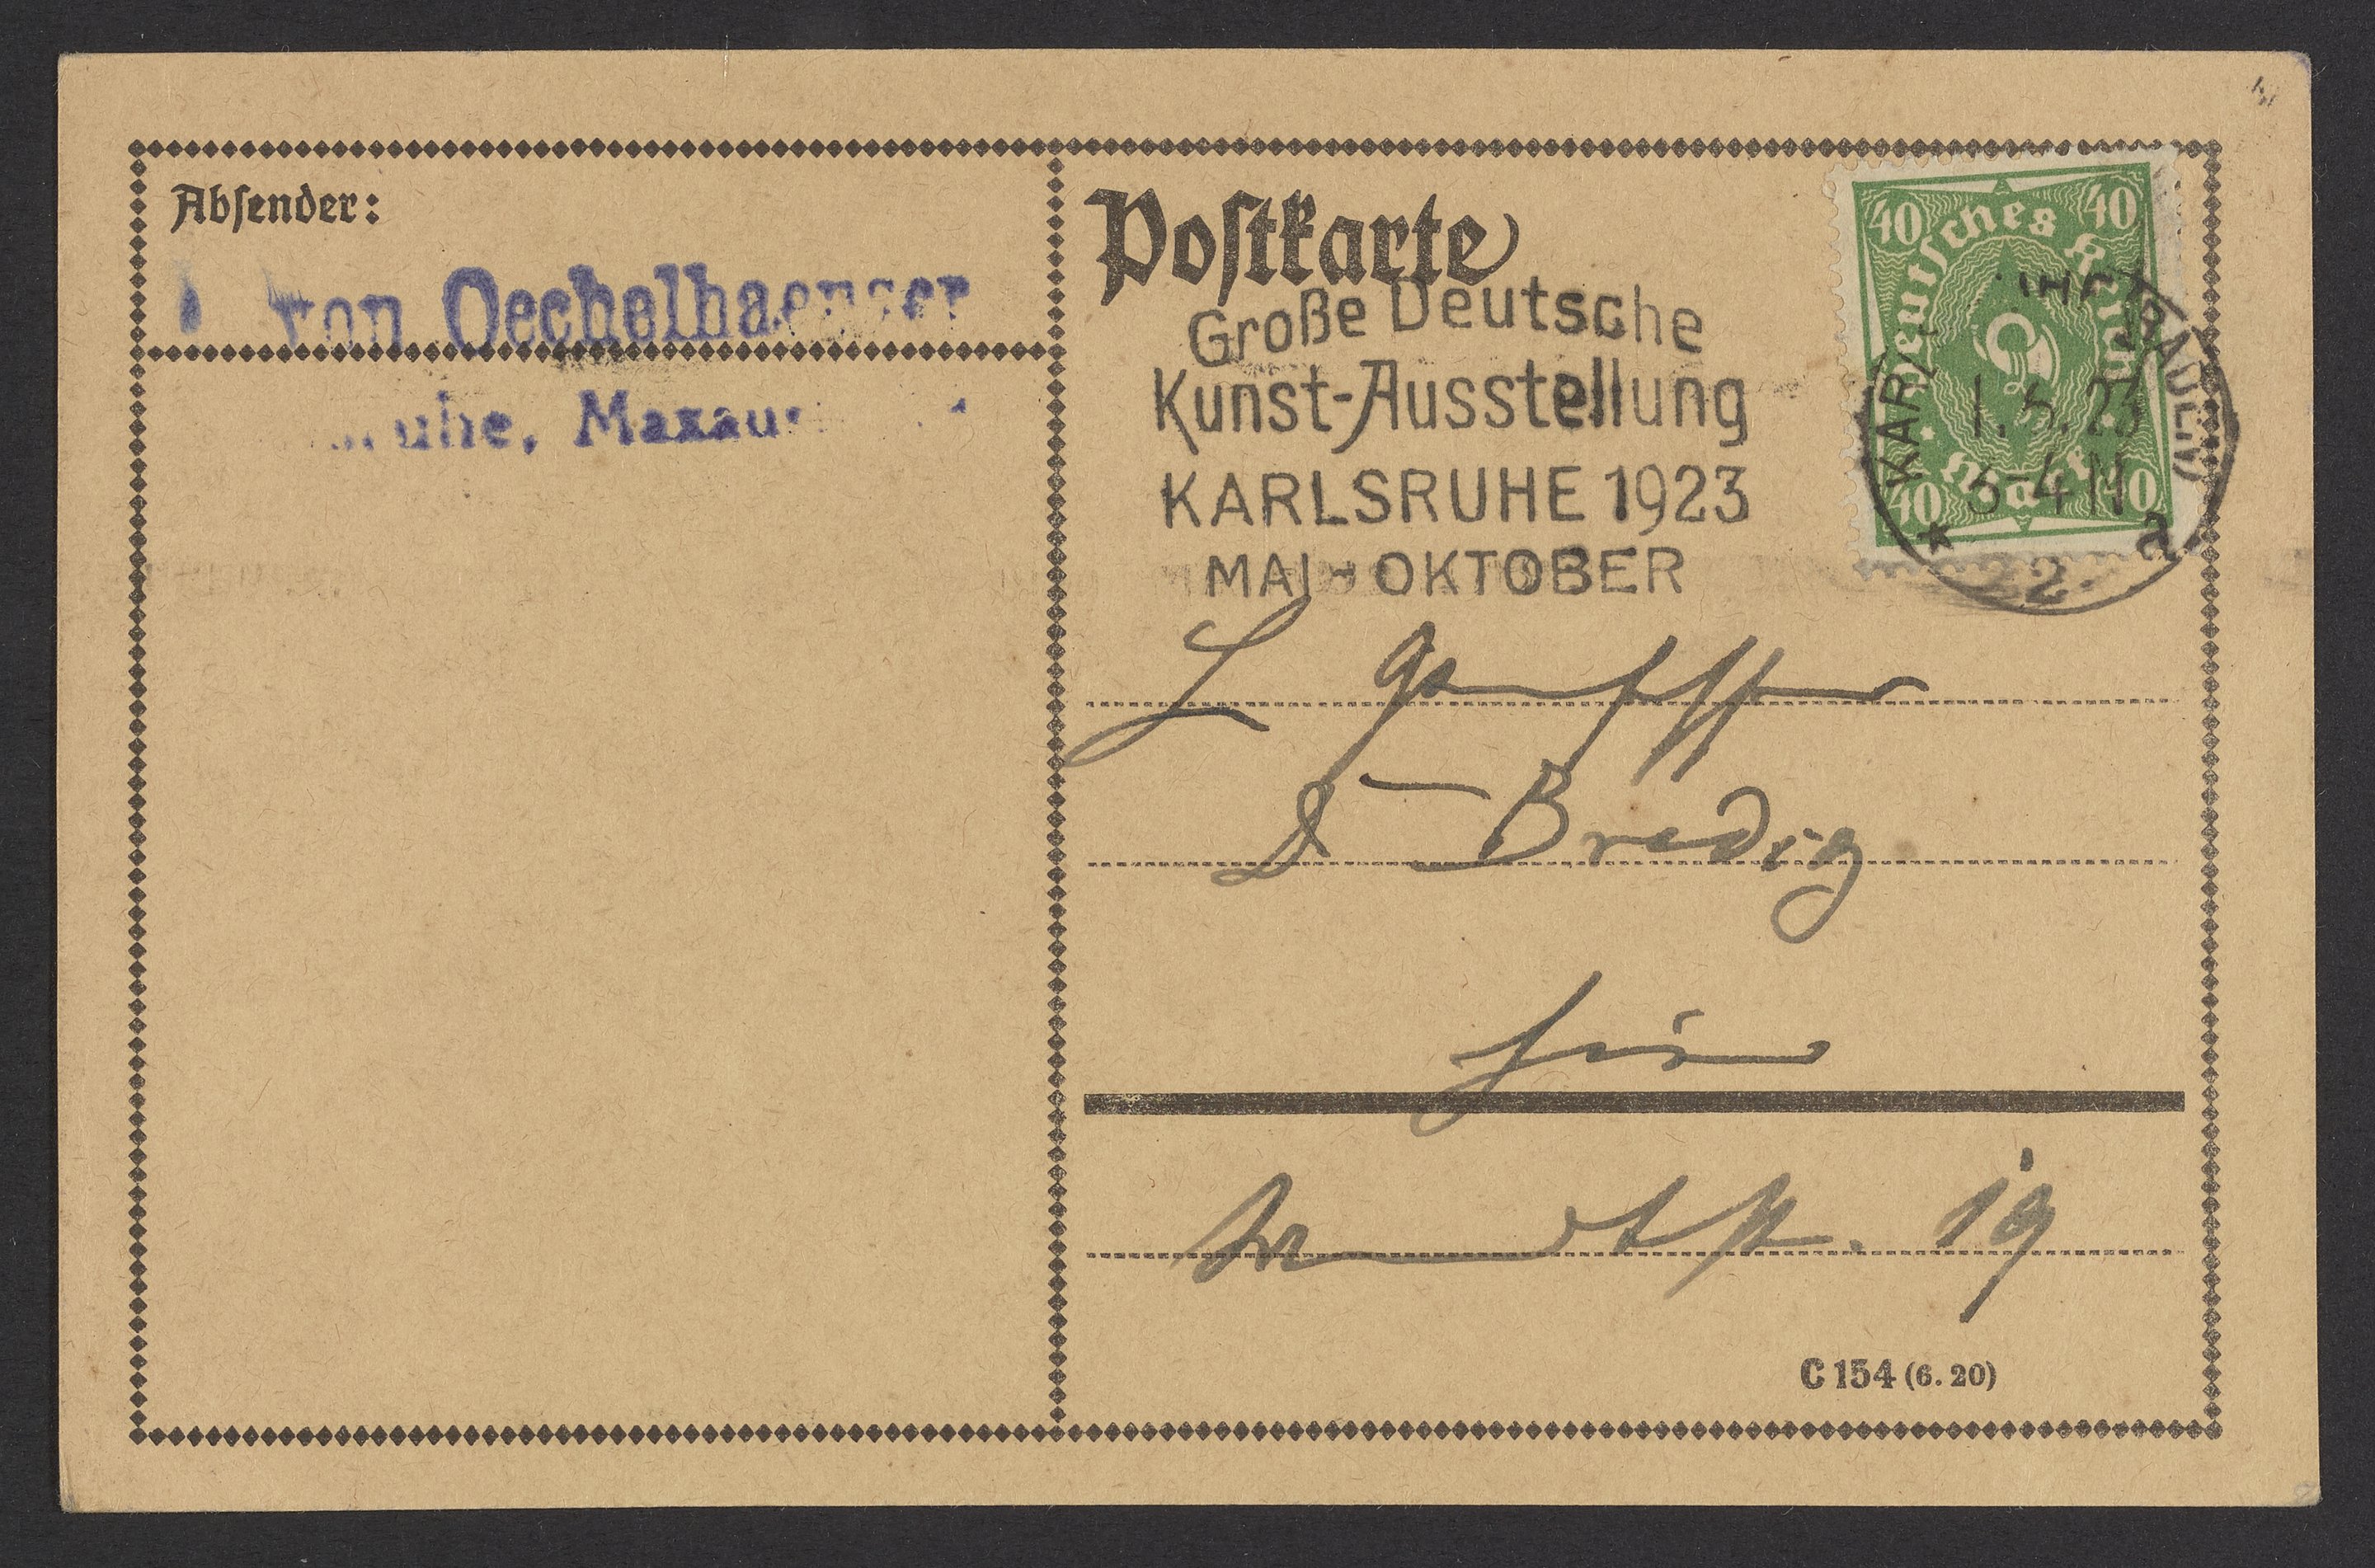 Absender:
von Oechelhaeuser
ruhe, Maxau
Postkarte
Große Deutsche
Kunst-Ausstellung
KARLSRUHE 1923
MAI-OKTOBER
40 40
Deutsches Reich
Mark
40 40
KARLSRUHE (BADEN)
1.5.23
3-4 N
* 2. a
Dr Bredig
hier
19
C 154 (6. 20)